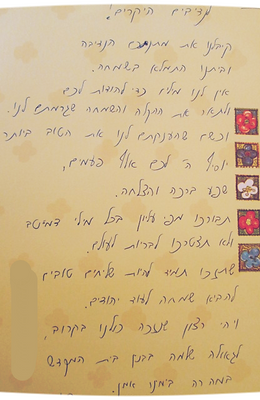 לנדיבים היקרים!
קיבלנו את מתנתכם הנדיבה
וביתנו התמלא בשמחה.
אין לנו מילים כדי להודות לכם
ולתאר את ההקלה והשמחה שגרמתם לנו.
וכשם שהענקתם לנו את הטוב ביותר
יוסף ה' לכם אלף פעמים,
שפע ברכה והצלחה.
תבורכו מפי עליון בכל מילי דמיטב
ולא תצטרכו לבריות לעולם.
שתזכו תמיד להיות שליחים טובים
להביא שמחה לעוד יהודים.
ויהי רצון שנזכה כולנו בקרוב,
לגאולה שלמה בבנין בית המקדש
במהרה בימנו אמן.